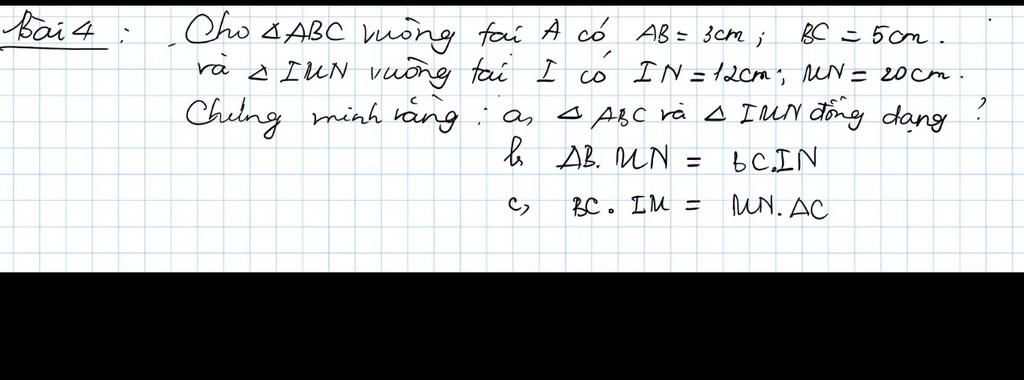 Bài 4 : Cho ΔABC vuông tại A có AB = 3cm ; BC = 5cm .
và Δ IMN vuông tại I có IN = 12cm ; MN = 20cm .
Chứng minh rằng : a, Δ ABC và Δ IMN đồng dạng ?
b, AB. MN = BC.IN
c, BC . IM = MN. AC